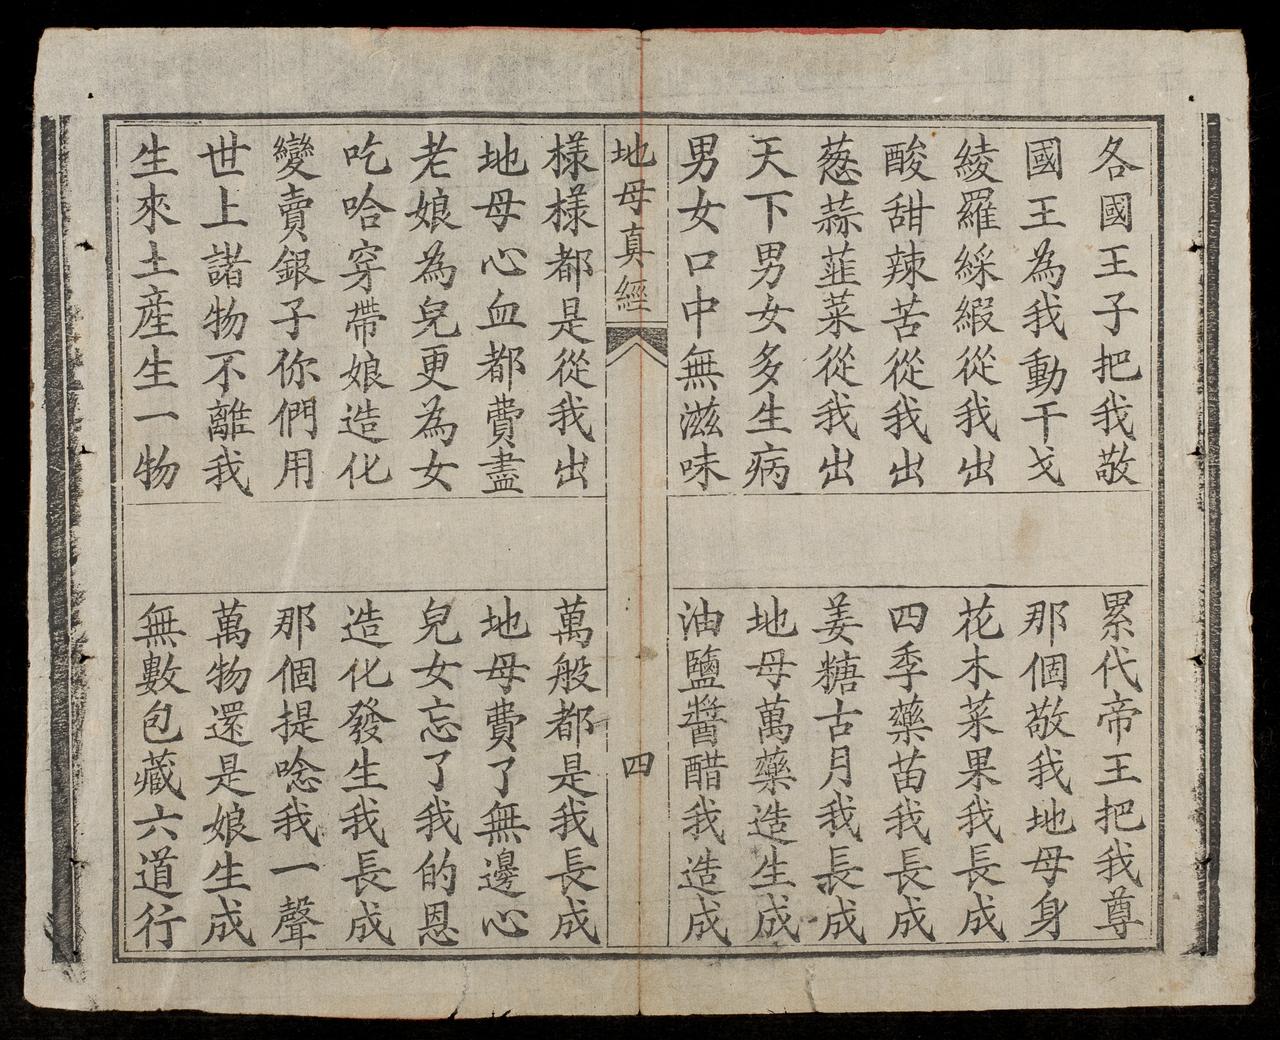 各國王子把我敬　累代帝王把我尊
國王為我動干戈　那個敬我地母身
綾羅綵緞從我出　花木菜果我長成
酸甜辣苦從我出　四季藥苗我長成
葱蒜韮菜從我出　姜糖古月我長成
天下男女多生病　地母萬藥造生成
男女口中無滋味　油鹽醬醋我造成
地母真經　四
樣樣都是從我出　萬般都是我長成
地母心血都費盡　地母費了無邊心
老娘為兒更為女　兒女忘了我的恩
吃哈穿帶娘造化　造化發生我長成
變賣銀子你們用　那個提唸我一聲
世上諸物不離我　萬物還是娘生成
生來土產生一物　無數包藏六道行